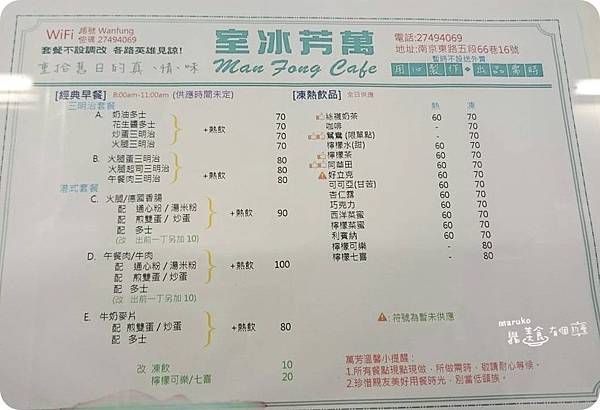 WiFi 帳號 Wanfung
密碼 27494069
套餐不設調改 各路英雄見諒!
重拾舊日的真、情、味
室冰芳萬
Man Fong Cafe
電話:27494069
地址:南京東路五段66巷16號
暫時不設送外賣
用心製作・出品需時
[經典早餐] 8:00am-11:00am (供應時間未定)
三明治套餐
A. 奶油多士 70
花生醬多士 70
炒蛋三明治 +熱飲 70
火腿三明治 70
B. 火腿蛋三明治 80
火腿起司三明治 +熱飲 80
午餐肉三明治 80
港式套餐
C. 火腿/德國香腸
配 通心粉 / 湯米粉
配 煎雙蛋 / 炒蛋 +熱飲 90
配 多士
(改 出前一丁另加 10)
D. 午餐肉/牛肉
配 通心粉 / 湯米粉 +熱飲 100
配 煎雙蛋 / 炒蛋
配 多士
(改 出前一丁另加 10)
E. 牛奶麥片
配 煎雙蛋 / 炒蛋 +熱飲 80
配 多士
改 凍飲 10
檸檬可樂/七喜 20
[凍熱飲品] 全日供應
熱 凍
絲襪奶茶 60 70
咖啡 - 70
鴛鴦 (限單點) 60 70
檸檬水(甜) 60 70
檸檬茶 60 70
阿華田 60 70
⚠好立克 60 70
可可亞(甘苦) 60 70
杏仁露 60 70
巧克力 60 70
西洋菜蜜 60 70
檸檬菜蜜 60 70
利賓納 60 70
檸檬可樂 - 80
檸檬七喜 - 80
⚠: 符號為暫未供應
萬芳溫馨小提醒:
1.所有餐點現點現做,所做需時,敬請耐心等候。
2.珍惜親友美好用餐時光,別當低頭族。
maruko
美食有個